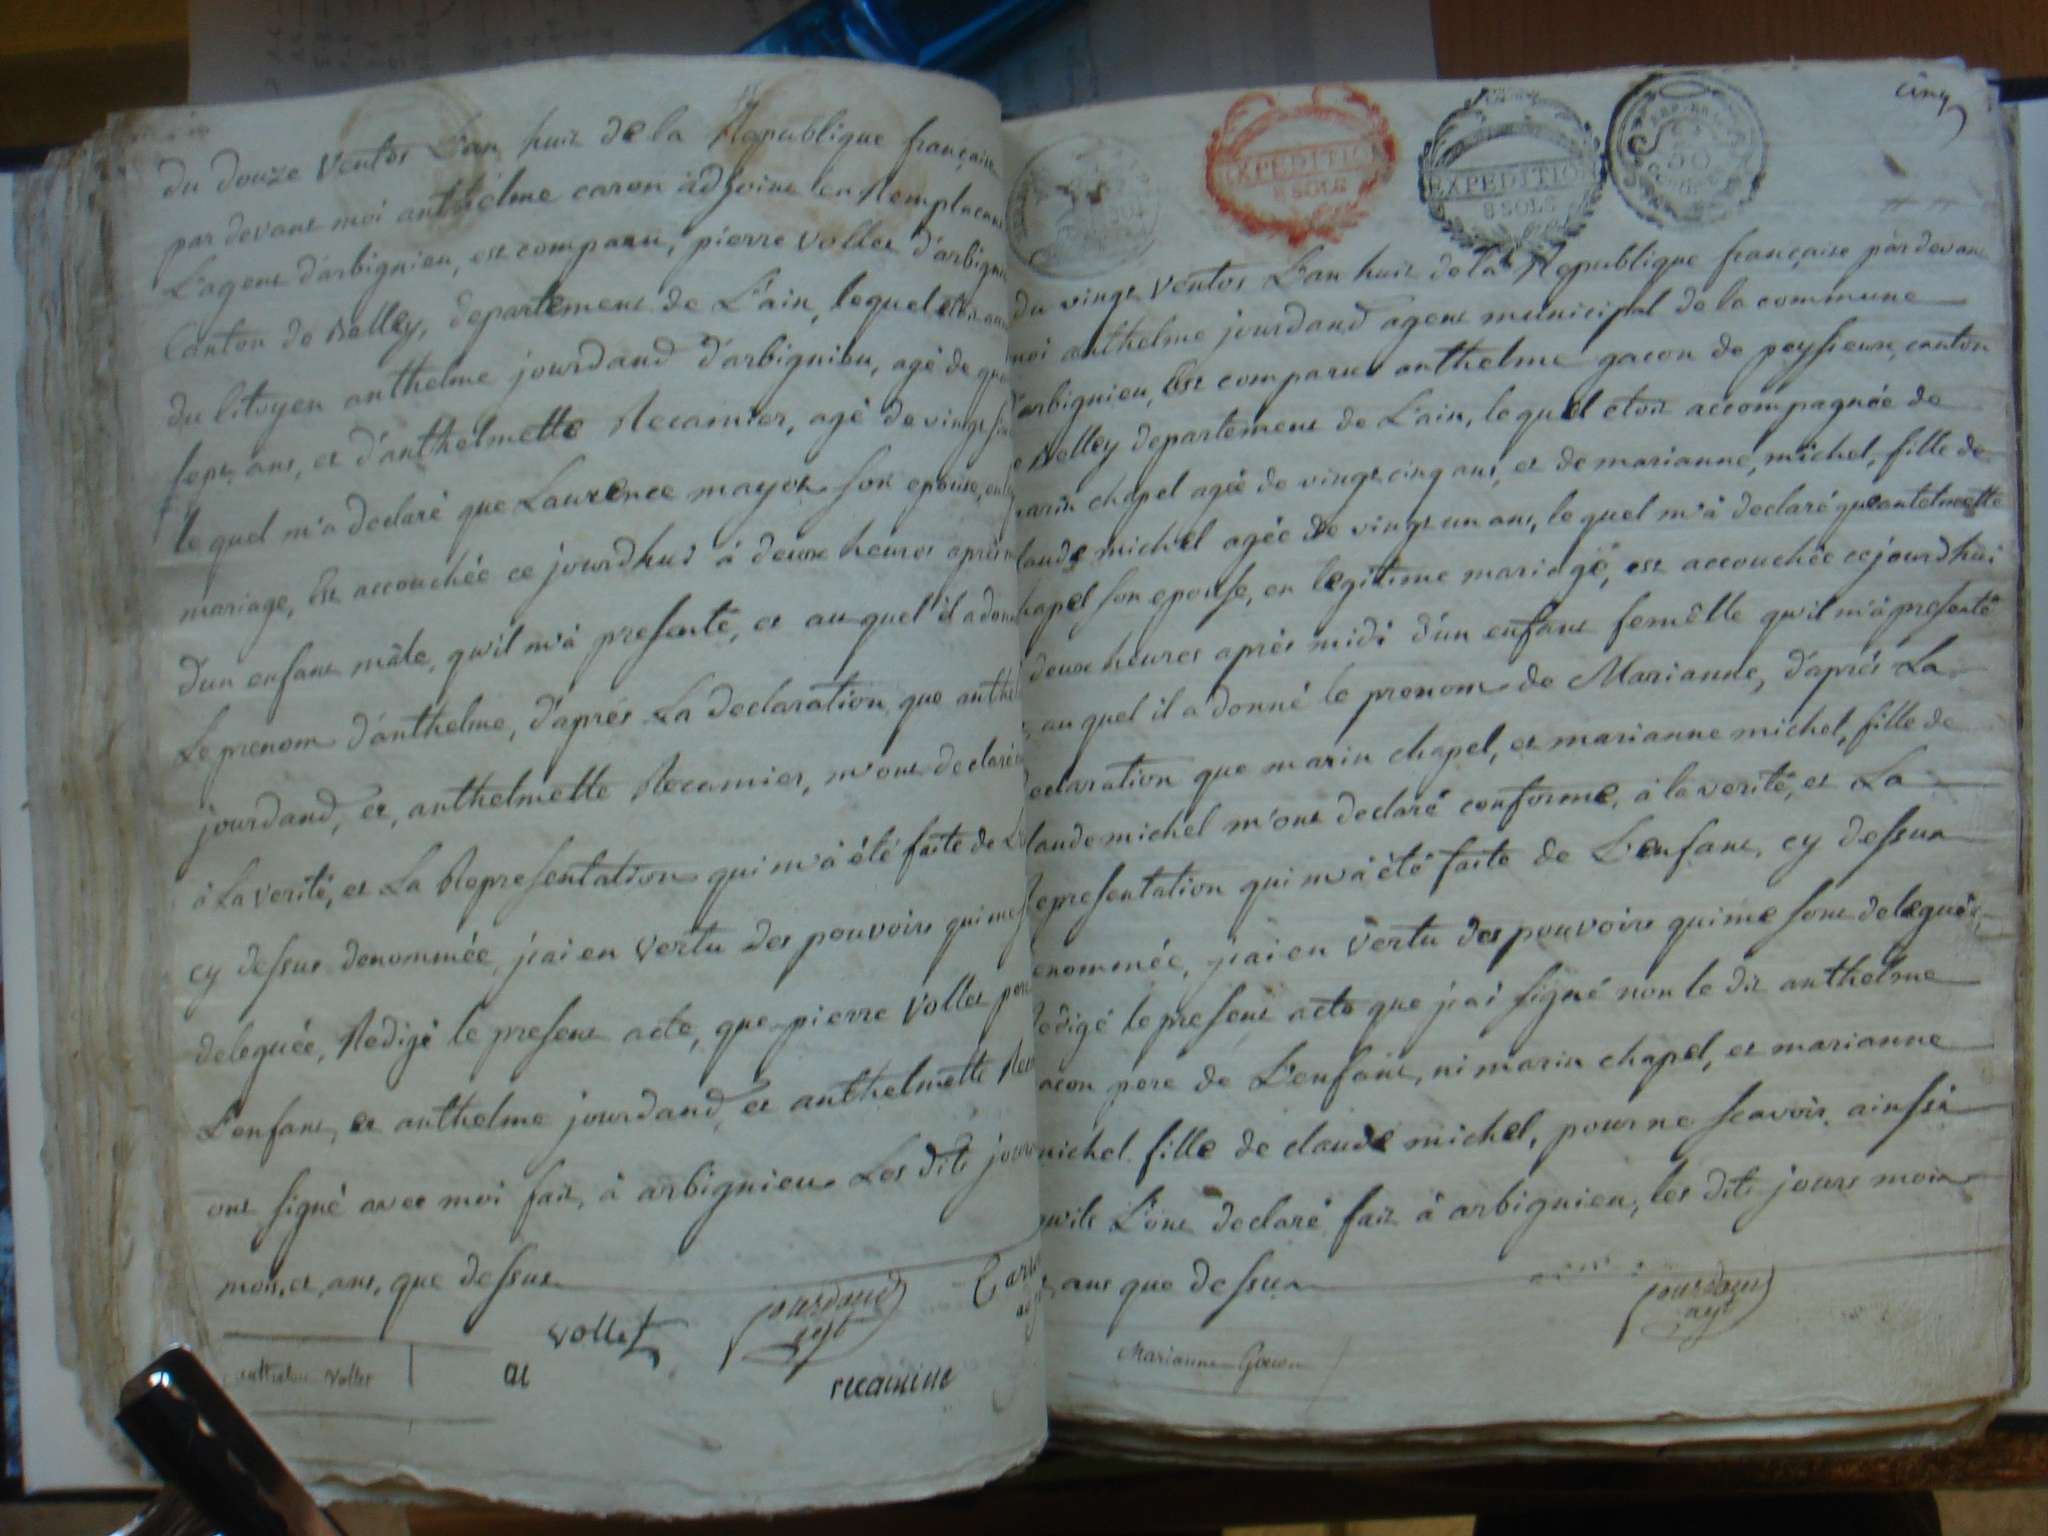 du douze Ventos L'an huit de la Republique française
par devant moi anthelme caron adjoint en Remplacant
L'agent d'arbignieu, est comparu, pierre Vollet d'arbignieu
Canton de Belley, departement de L'ain, lequel
du Citoyen anthelme jourdand d'arbignieu, agé de
sept ans, et d'anthelmette Recamier, agé de vingt
le quel m'a declaré que Laurence mayot son epouse, en
mariage, Est accouchée ce jourdhui à deux heures après
d'un enfant mâle, qu'il m'à presenté, et au quel il a donné
Le prenom d'anthelme, d'après La declaration que anthe
jourdand, et, anthelmette Recamier, m'ont declaré
à La verité, et La Representation qui m'à été faite de
cy dessus denommée, j'ai en vertu des pouvoirs qui me
deleguée, Redigé le present acte, que pierre Vollet pere
L'enfant, et anthelme jourdand, et anthelmette Rec
ont signé avec moi fait, à arbignieu Les dits jours
mois, et, ans, que dessus
vollet
jourdand
agt
Caro
ar
recamier
anthelme Vollet
cinq
EXPEDITION
8 SOLS
EXPEDITION
8 SOLS
REP. FRA.
50
du vingt Ventos L'an huit de la Republique française pardevant
moi anthelme jourdand agent municipal de la commune
d'arbignieu, Est comparu anthelme gacon de peyssieux, canton
de Belley departement de L'ain, le quel etoit accompagnée de
marin chapel agée de vingt cinq ans, et de marianne, michel, fille de
laude michel agée de vingt un ans, le quel m'à declaré que antelmette
hapel son epouse, en legitime mariage, est accouchée ce jourd'hui
deux heures après midi d'un enfant femêlle qu'il m'à presenté
, au quel il a donné le prenom de Marianne, d'après La
eclaration que marin chapel, et marianne michel, fille de
laude michel m'ont declaré conforme, à la verité, et La
epresentation qui m'à été faite de L'enfant, cy dessus
enommée, j'ai en vertu des pouvoirs qui me sont deleguée,
edigé le present acte que j'ai signé non le dit anthelme
acon pere de L'enfant, ni marin chapel, et marianne
michel fille de claude michel, pour ne scavoir, ainssi
qu'ils L'ont declaré fait à arbignieu, les dits jours mois
ans que dessus
jourdand
agt
Marianne Gacon